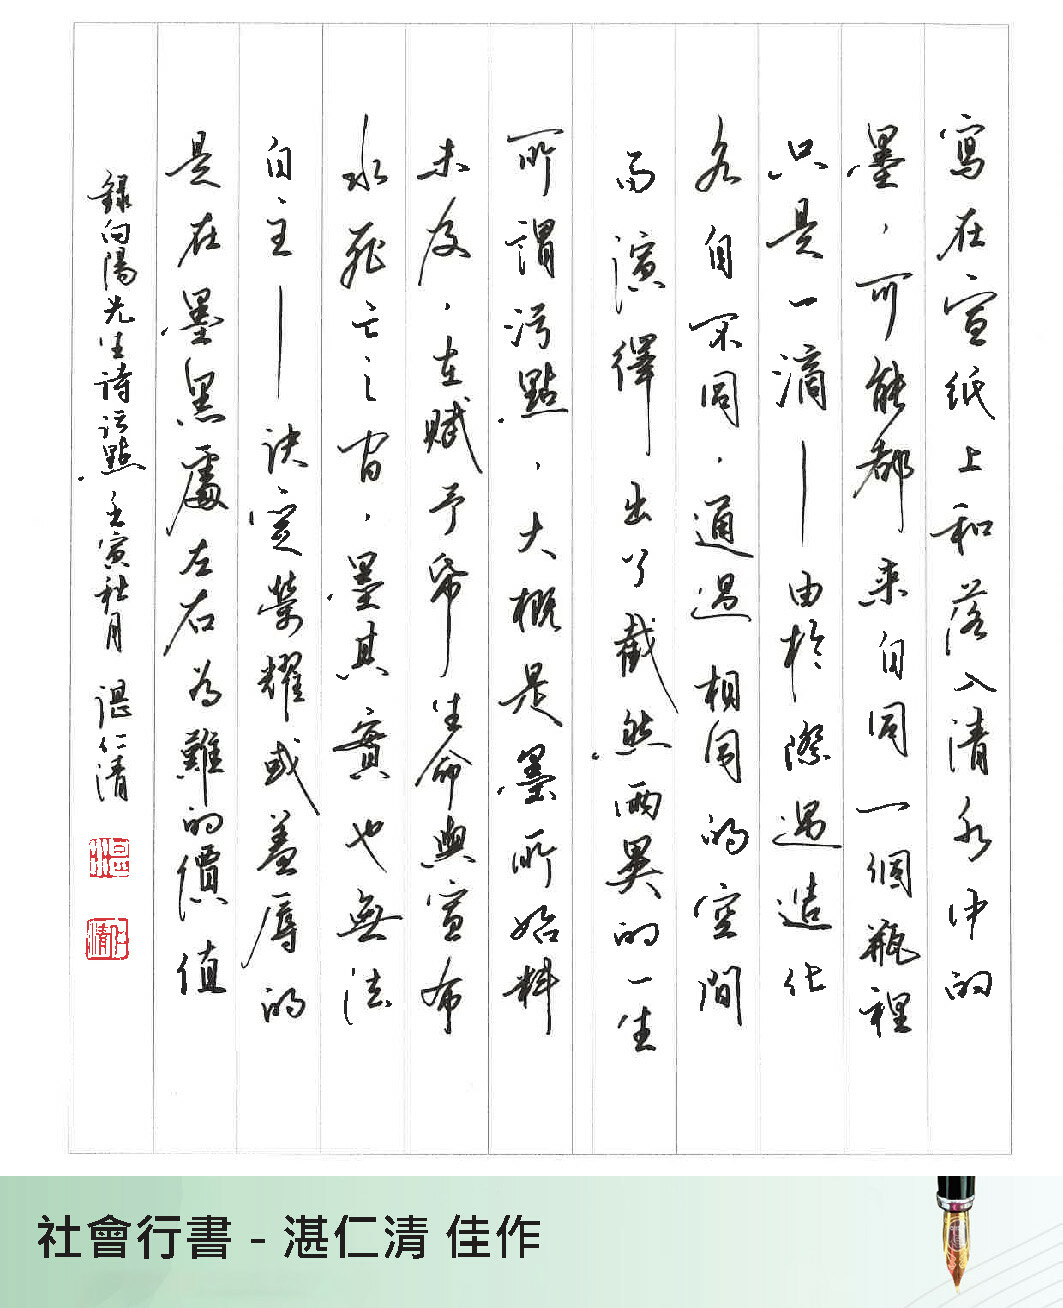 寫在宣紙上和落入清水中的
墨，可能都來自同一個瓶裡
只是一滴——由於際遇造化
各自不同，通過相同的空間
而演繹出了截然兩異的一生
所謂污點，大概是墨所始料
未及，在賦予帋生命與宣布
水死亡之間，墨其實也無法
自主——決定榮耀或羞辱的
是在墨黑處左右為難的價值
錄向陽先生詩污點 壬寅秋月 諶仁清
湛
仁清
社會行書 - 湛仁清 佳作